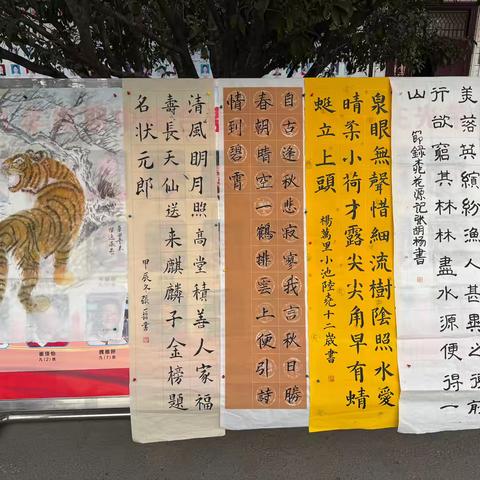 美落英繽紛漁人甚異之復前
行欲窮其林林盡水源便得一
山
泉眼無聲惜細流樹陰照水愛
晴柔小荷才露尖尖角早有蜻
蜓立上頭
楊萬里小池陸堯十二歲書
自古逢秋悲寂寥我言秋日勝
春朝晴空一鶴排雲上便引詩
情到碧霄
清風明月照高堂積善人家福
壽長天仙送来麒麟子金榜題
名状元郎
九(2)班
九(7)班